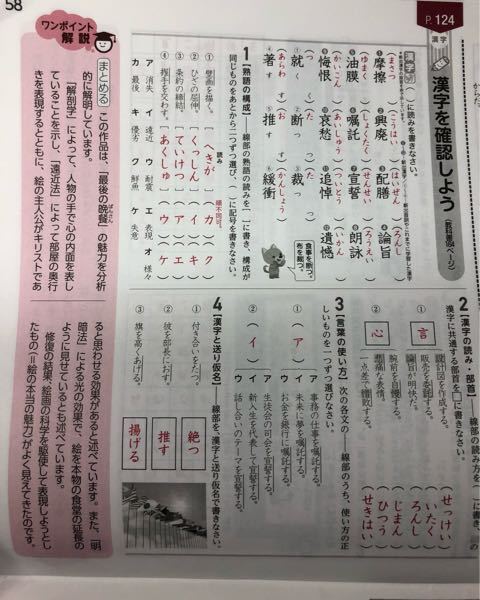 58
P.124
漢字
漢字を確認しよう
(教科書124ページ)
漢字
( )に読みを書きなさい。
1 摩擦 (まさつ)
2 興廃 (こうはい)
3 配膳 (はいぜん)
4 論旨 (ろんし)
5 油膜 (ゆまく)
6 嘱託 (しょくたく)
7 宣誓 (せんせい)
8 朗詠 (ろうえい)
9 悔恨 (かいこん)
10 哀愁 (あいしゅう)
11 追悼 (ついとう)
12 遺憾 (いかん)
①就く (つ)
②断つ (た)
③裁つ (た)
④著す (あらわ)
⑤推す (お)
⑥緩衝 (かんしょう)
食事を断つ。
布を裁つ。
1【熟語の構成】 線部の熟語の読みを[ ]に書き、構成が
同じものをあとから二つずつ選び、( )に記号を書きなさい。
読み
順不同可。
①壁画を描く。[へきが](カ)(ク)
②ひざの屈伸。[くっしん](イ)(キ)
③条約の締結。[ていけつ](ア)(エ)
④握手を交わす。[あくしゅ](ウ)(ケ)
ア 消失 イ 遠近 ウ 耐震 エ 表現 オ 様々
カ 最後 キ 優劣 ク 鮮魚 ケ 失意
2【漢字の読み・部首】 線部の読み方を( )に、
漢字に共通する部首を□に書きなさい。
① 言
設計図を作成する。(せっけい)
販売を委託する。(いたく)
論旨が明快だ。(ろんし)
② 心
腕前を自慢する。(じまん)
悲痛な表情。(ひつう)
一点差で惜敗する。(せきはい)
3【言葉の使い方】 次の各文の 線部のうち、使い方の正
しいものを一つずつ選びなさい。
①(ア)
ア 事務の仕事を嘱託する。
イ 未来に夢を嘱託する。
ウ お金を銀行に嘱託する。
②(イ)
ア 生徒会の司会を宣誓する。
イ 新入生を代表して宣誓する。
ウ 話し合いのテーマを宣誓する。
4【漢字と送り仮名】 線部を、漢字と送り仮名で書きなさい。
①付き合いをたつ。 絶つ
②彼を部長におす。 推す
③旗を高くあげる。 揚げる
ワンポイント
解説
まとめる この作品は、「最後の晩餐」の魅力を分析
的に解明しています。
「解剖学」によって、人物の手で心の内面を表し
ていることを示し、「遠近法」によって部屋の奥行
きを表現するとともに、絵の主人公がキリストであ
ると思わせる効果があると述べています。また、「明
暗法」による光の効果で、絵を本物の食堂の延長の
ように見せているとも述べています。
修復の結果、絵画の科学を駆使して表現しようとし
たもの(=絵の本当の魅力)がよく見えてきたのです。